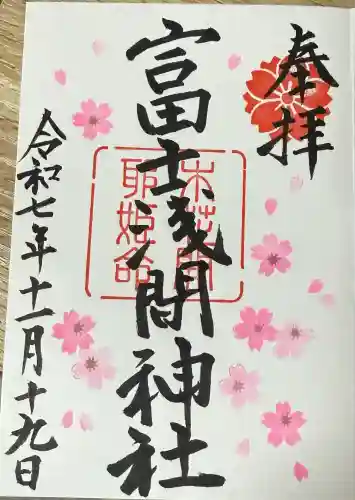 奉拝
冨士浅間神社
木花開
耶姫命
令和七年十一月十九日